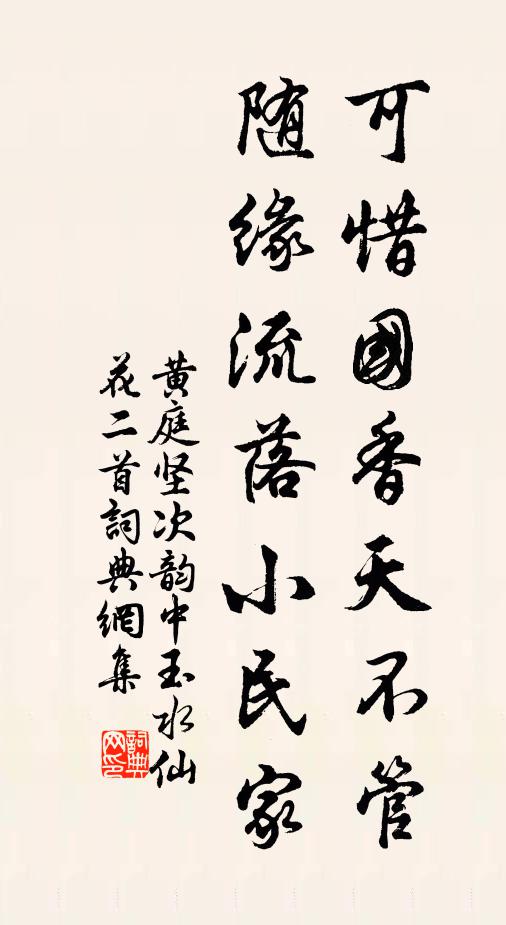 可惜國香天不管
随缘流落小民家
黄庭坚次韵中玉水仙
花二首詞典網集
詞典网印